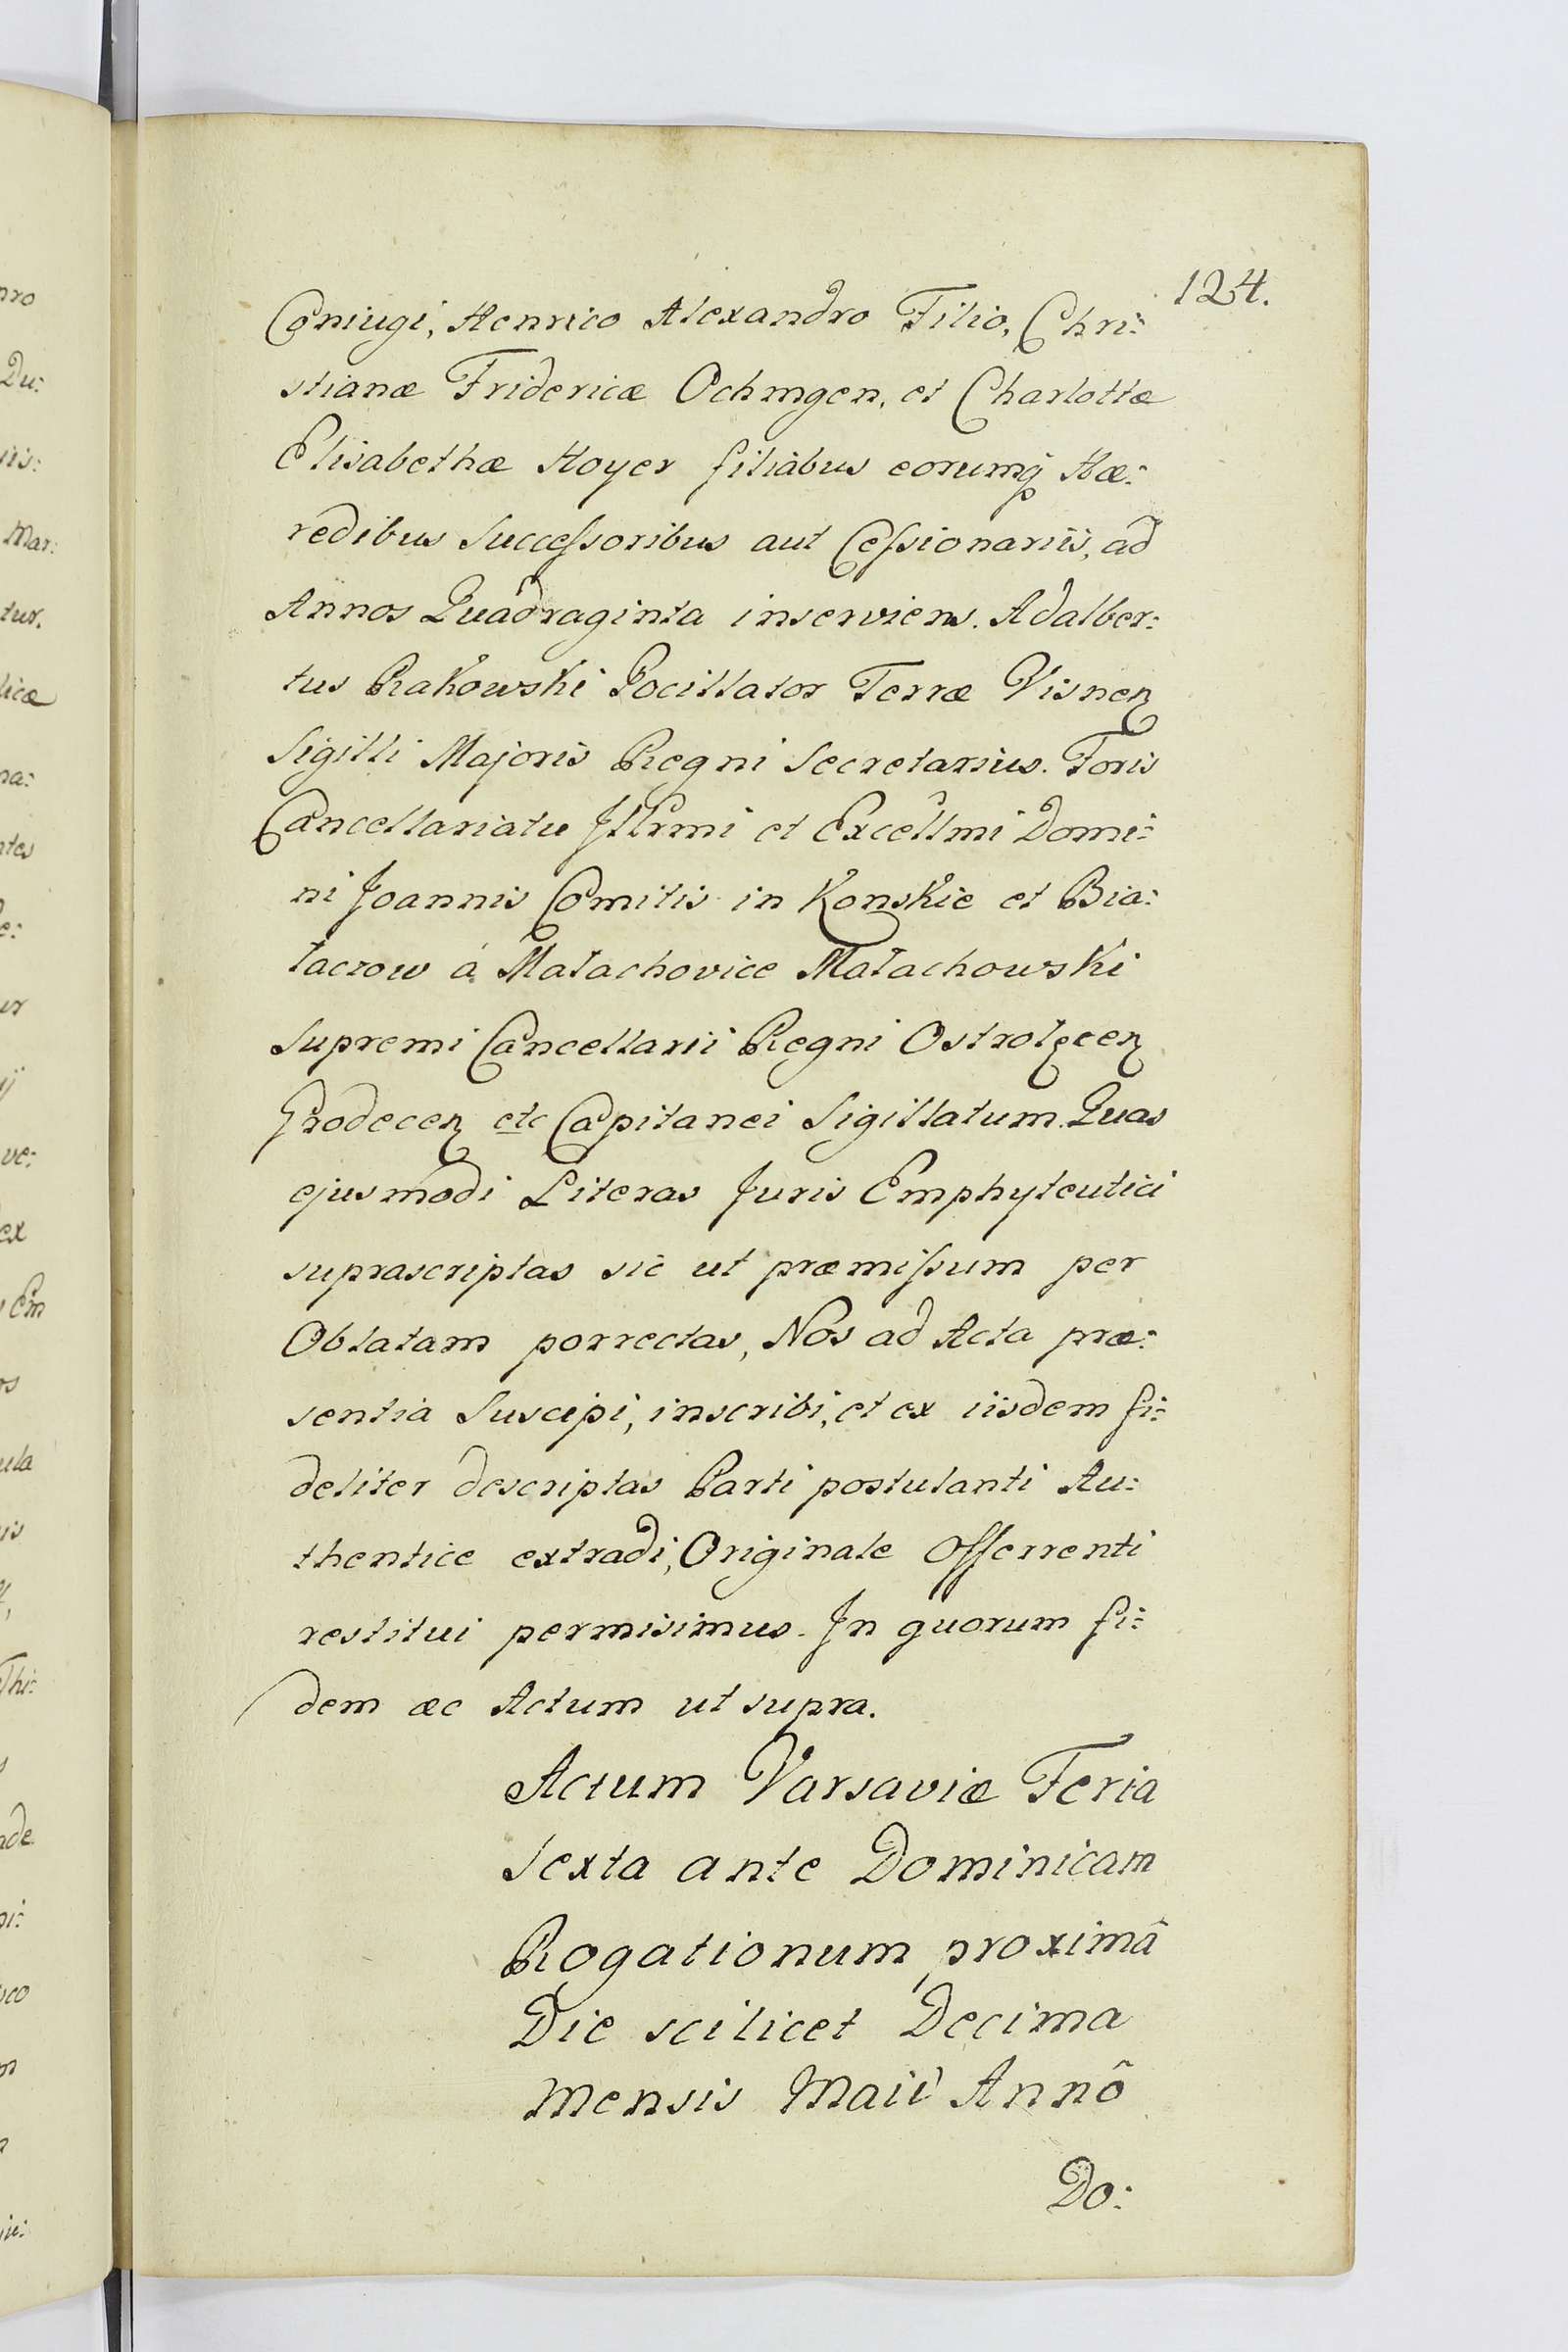 124.
Coniugi, Henrico Alexandro Filio, Chri:
stianæ Fridericæ Ochmgen, et Charlottæ
Elisabethæ Hoyer filiabus eorumq Hæ:
redibus Successoribus aut Cessionariis, ad
Annos Quadraginta inserviens. Adalber:
tus Rakowski Pocillator Terræ Visnen
Sigilli Majoris Regni Secretarius. Foris
Cancellariatu Jllrmi et Excellmi Domi:
ni Joannis Comitis in Konskie et Bia:
łaczow á Małachovice Małachowski
Supremi Cancellarii Regni Ostrołęcen
Grodecen etc Capitanei Sigillatum. Quas
ejusmodi Literas Juris Emphyteutici
suprascriptas sic ut præmissum per
Oblatam porrectas, Nos ad Acta præ:
sentia Suscipi, inscribi, et ex iisdem fi:
deliter descriptas Parti postulanti Au:
thentice extradi, Originale Offerrenti
restitui permisimus. Jn quorum fi:
dem æc Actum ut supra.
Actum Varsaviæ Feria
Sexta ante Dominicam
Rogationum proximâ
Die scilicet Decima
Mensis Maii Annô
Do: